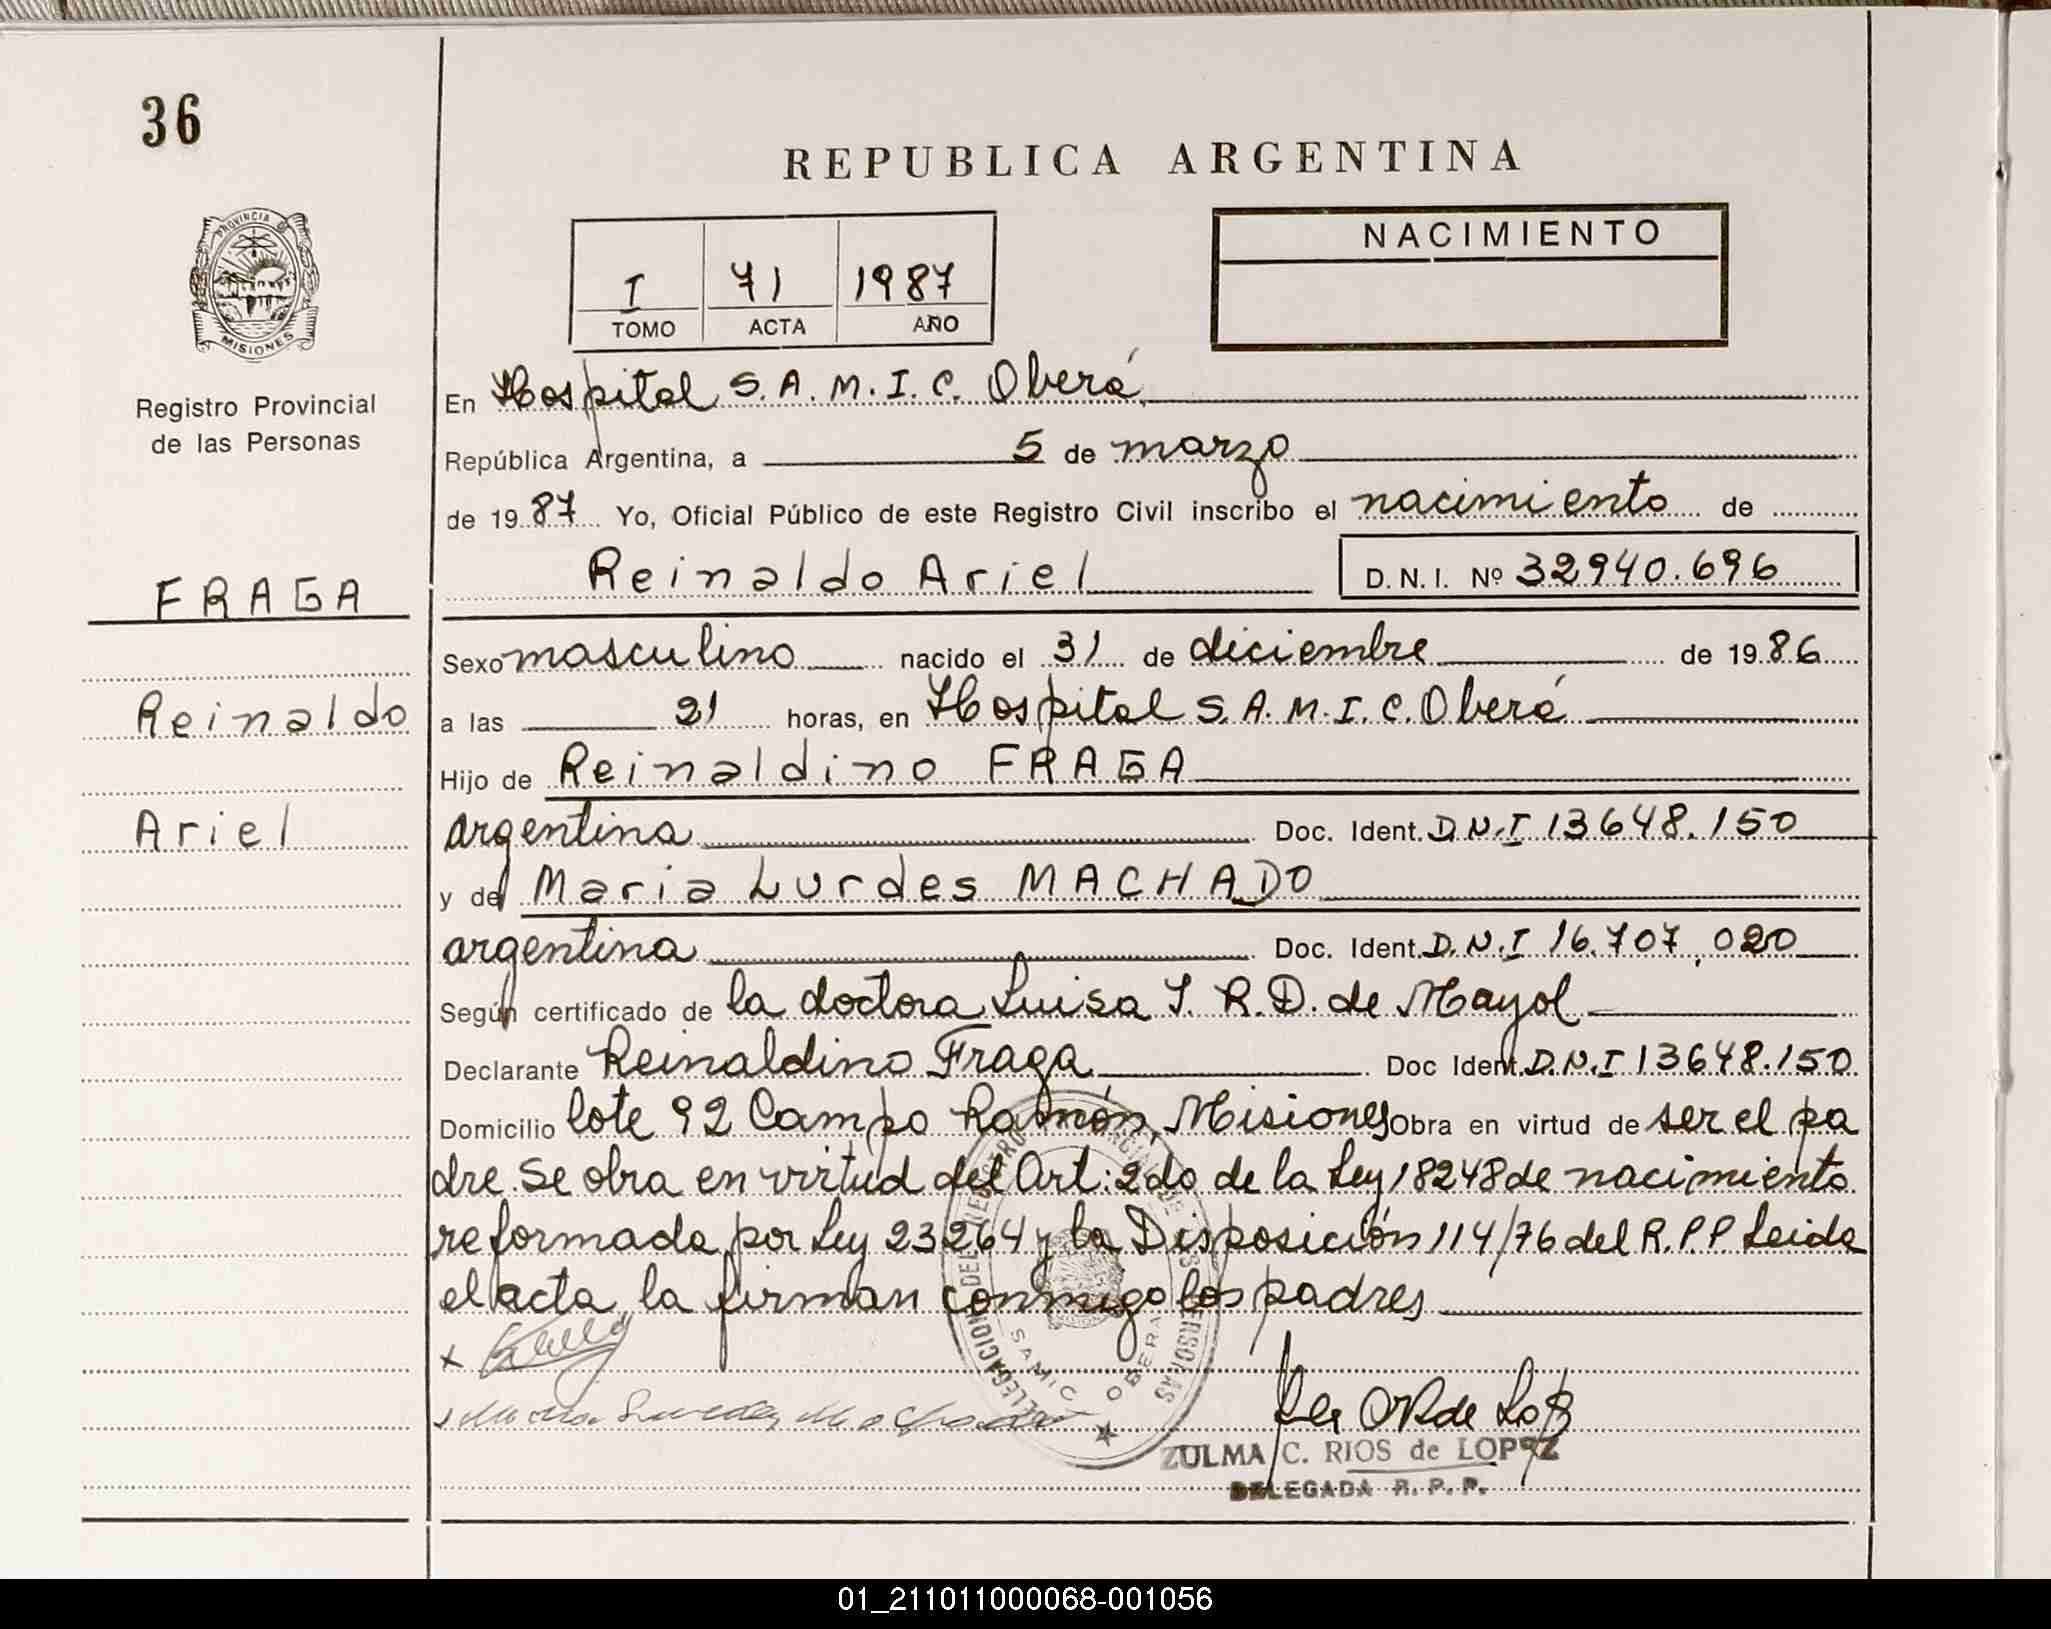 36
REPUBLICA ARGENTINA
PROVINCIA DE
MISIONES
Registro Provincial
de las Personas
FRAGA
Reinaldo
Ariel
I 71 1987
TOMO ACTA AÑO
NACIMIENTO
En Hospital S.A.M.I.C. Oberá
República Argentina, a 5 de marzo
de 1987 Yo, Oficial Público de este Registro Civil inscribo el nacimiento de
Reinaldo Ariel D.N.I. Nº 32940.696
Sexo masculino nacido el 31 de diciembre de 1986
a las 21 horas, en Hospital S.A.M.I.C. Oberá
Hijo de Reinaldino FRAGA
argentina Doc. Ident. D.N.I 13648.150
y de Maria Lurdes MACHADO
argentina Doc. Ident. D.N.I 16.707.020
Según certificado de la doctora Luisa I. R.D. de Mayol
Declarante Reinaldino Fraga Doc Ident. D.N.I 13648.150
Domicilio lote 92 Campo Ramón, Misiones Obra en virtud de ser el pa
dre. Se obra en virtud del Art: 2do de la Ley 18248 de nacimiento
reformada por Ley 23264 y la Disposición 114/76 del R.P.P Leida
el acta, la firman conmigo los padres
DELEGACION DEL REGISTRO PROVINCIAL DE LAS PERSONAS
SAMIC OBERA
ZULMA C. RIOS de LOPEZ
DELEGADA R.P.P.
01_211011000068-001056